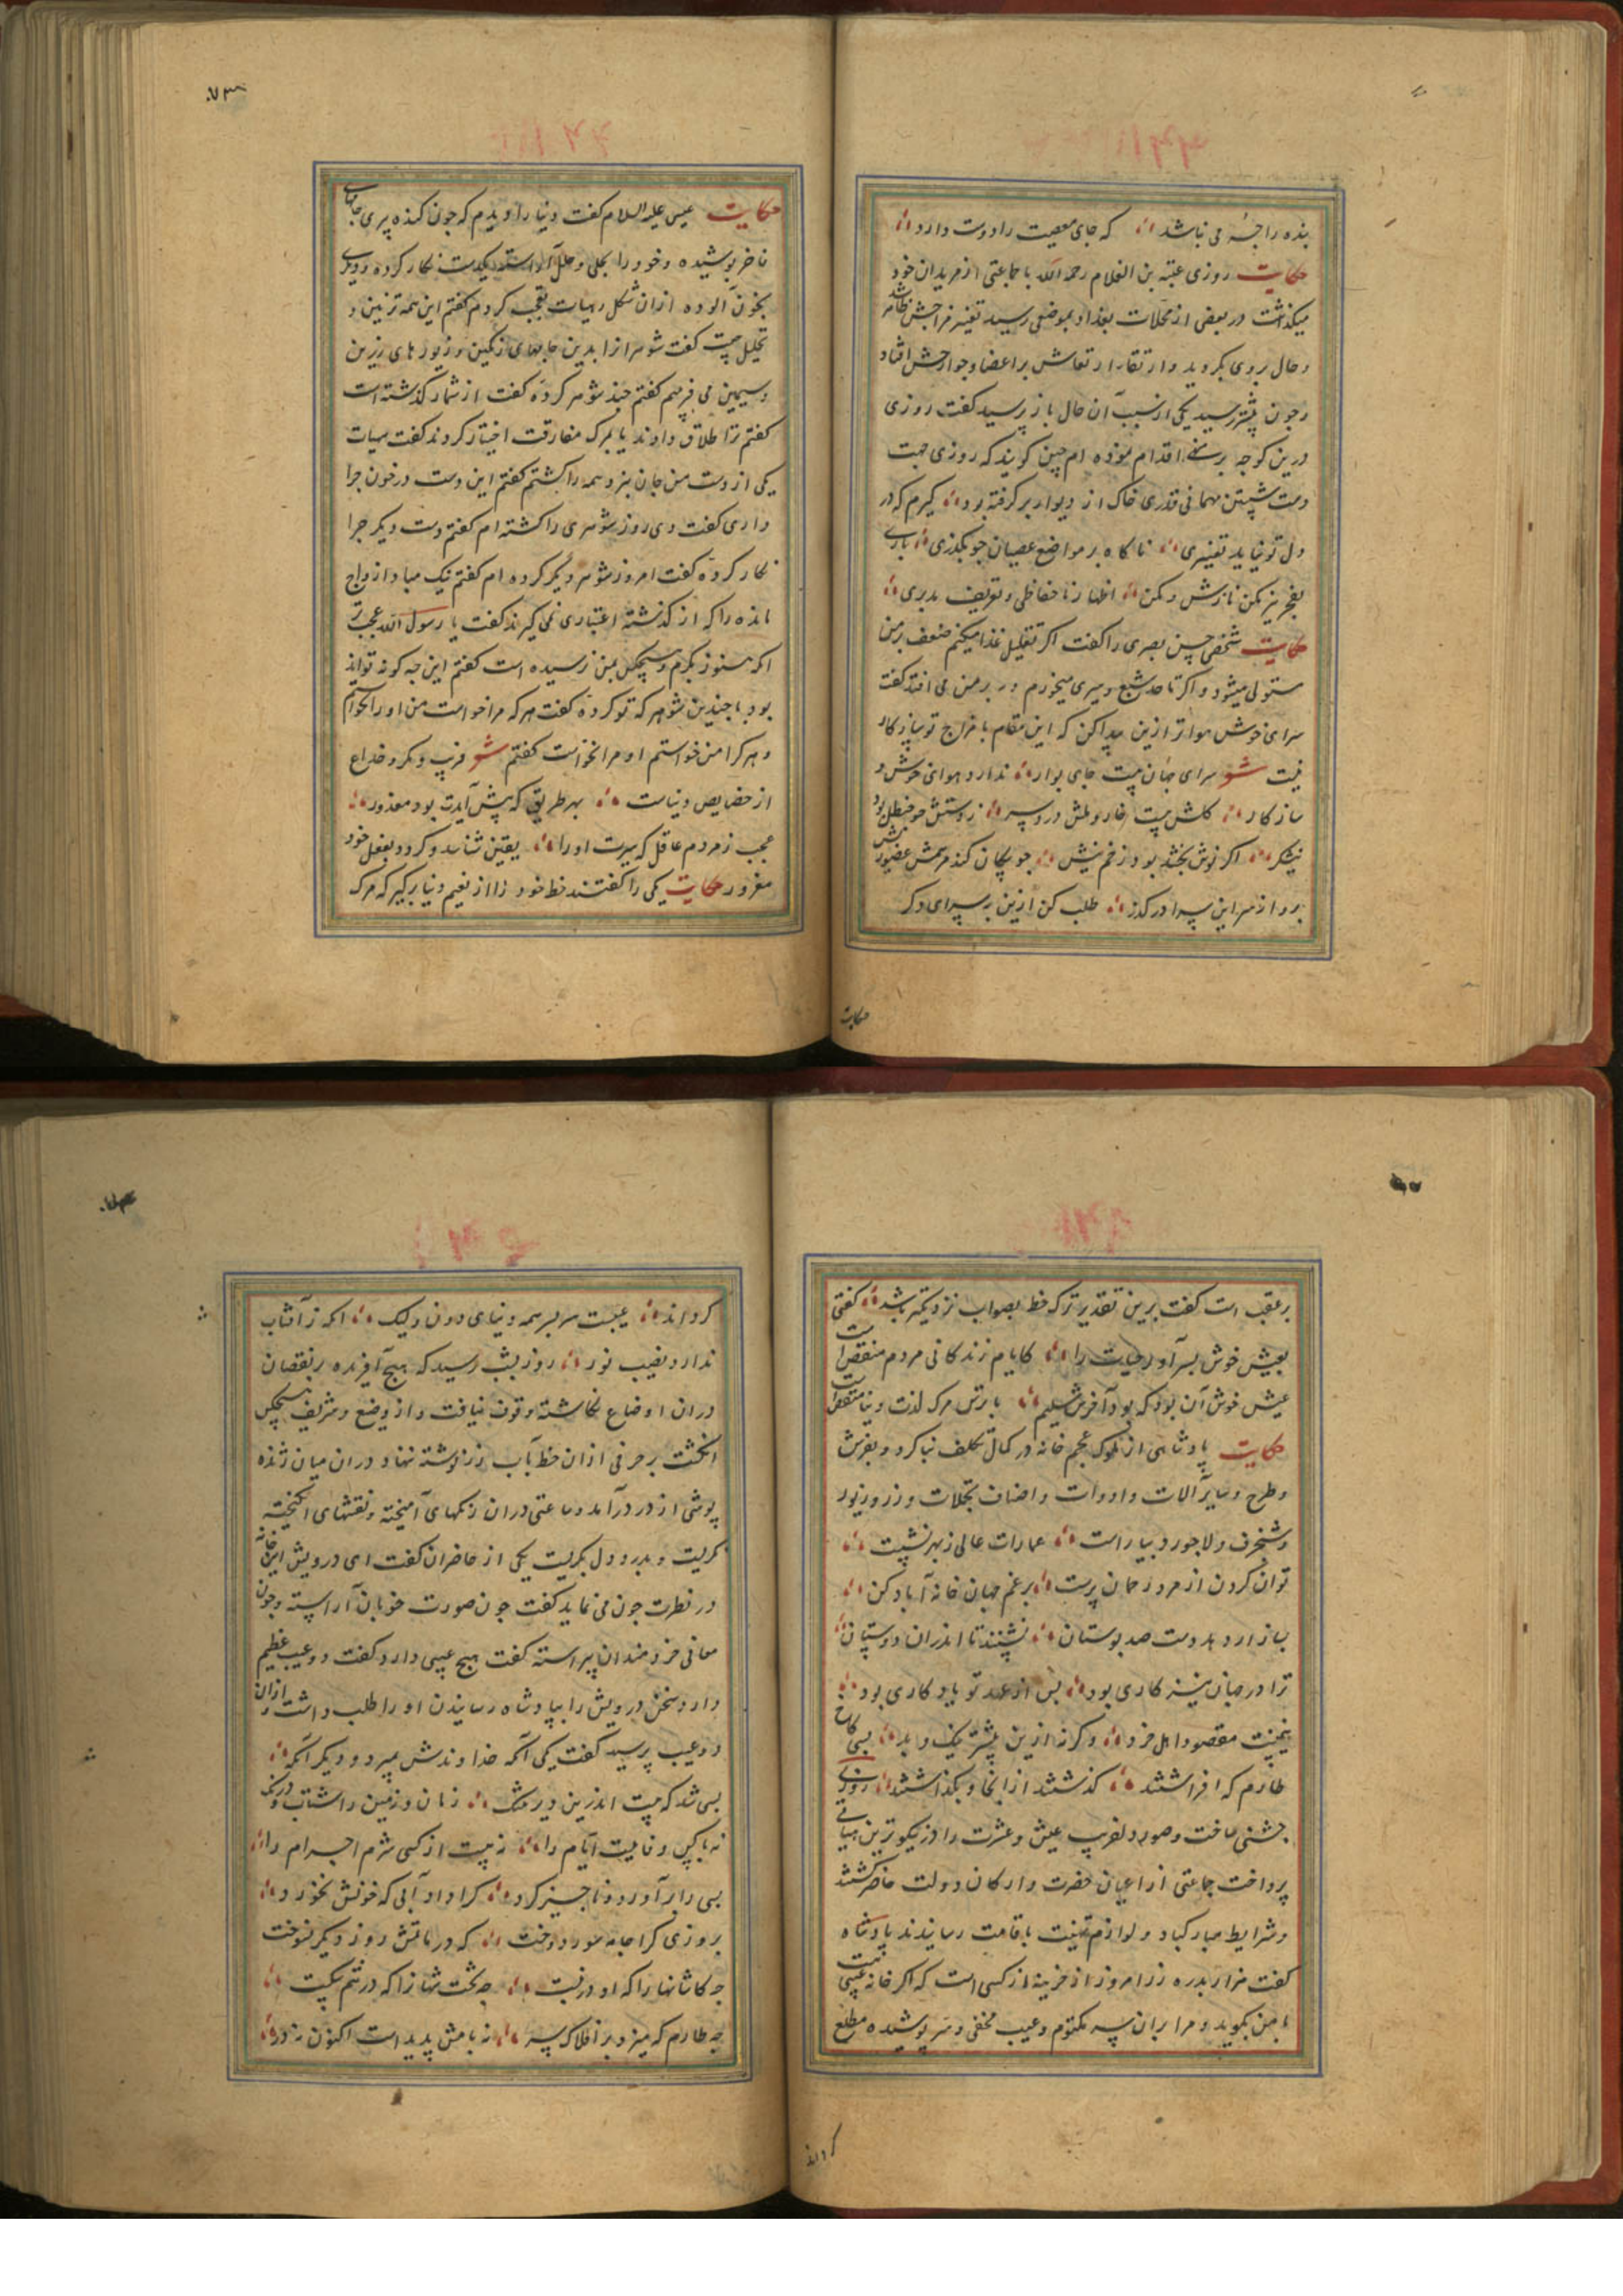 بنده را جبه می نباشد که جای معصیت را دوست دارد
حکایت روزی عتبة بن الغلام رحمه الله با جماعتی از مریدان خود
میگذشت در بعضی از محلات بغداد بموضعی رسید تغییر مزاجش ظاهر شد
و حال بروی بگردید و ارتعاش بر اعضا و جوارحش افتاد
و چون پیشتر رسید یکی از سبب آن حال باز پرسید گفت روزی
درین کوچه بر اقدام نموده ام چنین گویند که روزی جهت
دست شستن مهمانی قدری خاک از دیوار بر گرفته بود گیرم که در
دل تو نیاید تغییری ناگاه بر مواضع عصیان چو بگذری باری
حکایت شخصی حسن بصری را گفت اگر تقلیل غذا میکنم ضعف بر من
مستولی میشود و اگر تا حد شبع و سیری میخورم در بر من می افتد گفت
سرای خوش هواتر ازین پیدا کن که این مقام با مزاج تو سازگار
نیست شعر سرای جهان نیست جای بوار ندارد هوای خوش و
سازگار گلش نیست خار و ملش دردسر
نیشکر اگر نوش بخشد بود زخم نیش
برو از سر این سرا در گذر طلب کن ازین به سرای دگر
حکایت
۷۳
حکایت عیسی علیه السلام گفت دنیا را دیدم که چون گنده پیری جامهای
فاخر پوشیده و خود را بحلی و حلل آراسته یکدست نگار کرده و دیگری
بخون آلوده ازان شکل و هیات تعجب کردم گفتم این همه تزیین و
تحلیل چیست گفت شوهرانرا بدین جامهای رنگین و زیورهای زرین
و سیمین می فریبم گفتم چند شوهر کرده گفت از شمار گذشته است
گفتم ترا طلاق دادند یا بمرگ مفارقت اختیار کردند گفت هیهات
یکی از دست من جان نبرد همه را بکشتم گفتم این دست در خون چرا
داری گفت دی روز شوهری را کشته ام گفتم دست دیگر چرا
نگار کرده گفت امروز شوهر دیگر کرده ام گفتم نیک مباد ازواج
مانده را که از گذشته اعتباری نمی گیرند گفت یا رسول الله عجب تر
آنکه هنوز بکرم و هیچکس بمن نرسیده است گفتم این چه گونه تواند
بود با چندین شوهر که تو کرده گفت هر که مرا خواست من او را نخواستم
و هر کرا من خواستم او مرا نخواست گفتم شعر فریب و مکر و خداع
از خصایص دنیاست بهر طریق که پیش آیدت بود معذور
عجب ز مردم عاقل که سیرت او را یقین شناسد و گردد بفعل خود
مغرور حکایت یکی را گفتند حظ خود را از نعیم دنیا بر گیر که مرگ
بر عقب است گفت برین تقدیر ترک حظ بصواب نزدیکتر باشد گفتی
بعیش خوش بسر آور حیات را کایام زندگانی مردم منغص است
عیش خوش آن بود که بود آخرش با ترس مرگ لذت دنیا منغص است
حکایت پادشاهی از ملوک عجم خانه در کمال تکلف بنا کرد و بفرش
و طرح و سایر آلات و ادوات و اصناف تجملات و زر و زیور
و شنجرف و لاجورد بیاراست عمارات عالی ز بهر نشست
توان کردن از مرد رحمان پرست برغم جهان خانه آباد کن
بیازار دهد دست صد بوستان نشینند تا اندران دوستان
ترا در جهان نیز کاری بود پس از عهد تو یادگاری بود
همینست مقصود اهل خرد و گرنه ازین پیشتر نیک و بد بسی کاخ
طارم که افراشتند گذشتند ازانجا و بگذاشتند روزی
جشنی ساخت و صور دلفریب عیش و عشرت را در نیکوترین هیاتی
پرداخت جماعتی از اعیان حضرت و ارکان دولت حاضر گشتند
و شرایط مبارکباد و لوازم تهنیت باقامت رسانیدند پادشاه
گفت هزار بدره زر امروز از خزینه از کسی است که اگر خانه عیبی هست
با من بگوید و مرا بران سر مکتوم و عیب مخفی و سر پوشیده مطلع
گرداند
گرداند عیبست سر بسر همه دنیای دون ولیک اگه ز آفتاب
ندارد نصیب نور روز بشب رسید که هیچ آفریده بر نقصان
دران اوضاع نگاشته وقوف نیافت و از وضیع و شریف هیچکس
انگشت بر حرفی ازان خط آب زر نوشته ننهاد دران میان ژنده
پوشی از در درآمد و ساعتی دران رنگهای آمیخته و نقشهای انگیخته
نگریست و بدرد دل بگریست یکی از حاضران گفت ای درویش این خانه
در نظرت چون می نماید گفت چون صورت خوبان آراسته و چون
معانی خردمندان پیراسته گفت هیچ عیبی دارد گفت دو عیب عظیم
دارد سخن درویش را بپادشاه رسانیدن او را طلب داشت و ازان
دو عیب پرسید گفت یکی آنکه خداوندش بمیرد و دیگر آنکه
بسی شد که نیست اندرین دیر تنگ زمان و زمین را شتاب و درنگ
نه با کس وفاییست ایام را نه نیست از کسی شرم اجرام را
بسی را برآورد و ناچیز کرد کرا داد آبی که خونش نخورد
بروزی کرا جامه سور دوخت که در ماتمش روز دیگر نسوخت
چه کاشانها را که او در نبست چه پشت شهانرا که در غم شکست
چه طارم که میزد بر افلاک سر نه بامش پدید است اکنون نه در